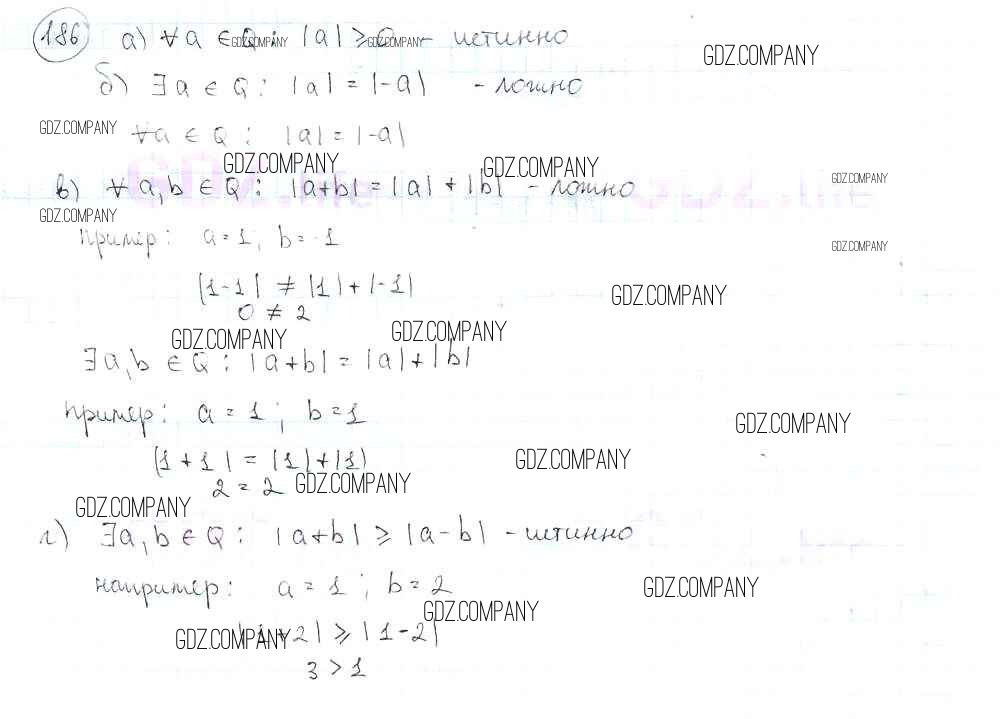 186 а) ∀a ∈ Q : |a| ≥ 0 - истинно
GDZ.COMPANY GDZ.COMPANY GDZ.COMPANY
б) ∃a ∈ Q : |a| = |-a| - ложно
GDZ.COMPANY ∀a ∈ Q : |a| = |-a|
GDZ.COMPANY GDZ.COMPANY
в) ∀a,b ∈ Q : |a+b| = |a| + |b| - ложно GDZ.COMPANY
GDZ.COMPANY
пример: a = 1; b = -1 GDZ.COMPANY
|1-1| ≠ |1| + |-1| GDZ.COMPANY
0 ≠ 2
GDZ.COMPANY GDZ.COMPANY
∃a,b ∈ Q : |a+b| = |a| + |b|
пример: a = 1; b = 1 GDZ.COMPANY
|1+1| = |1|+|1| GDZ.COMPANY
2 = 2 GDZ.COMPANY
GDZ.COMPANY
г) ∃a,b ∈ Q : |a+b| ≥ |a-b| - истинно
например: a = 1; b = 2 GDZ.COMPANY
GDZ.COMPANY
GDZ.COMPANY +2| ≥ |1-2|
3 > 1